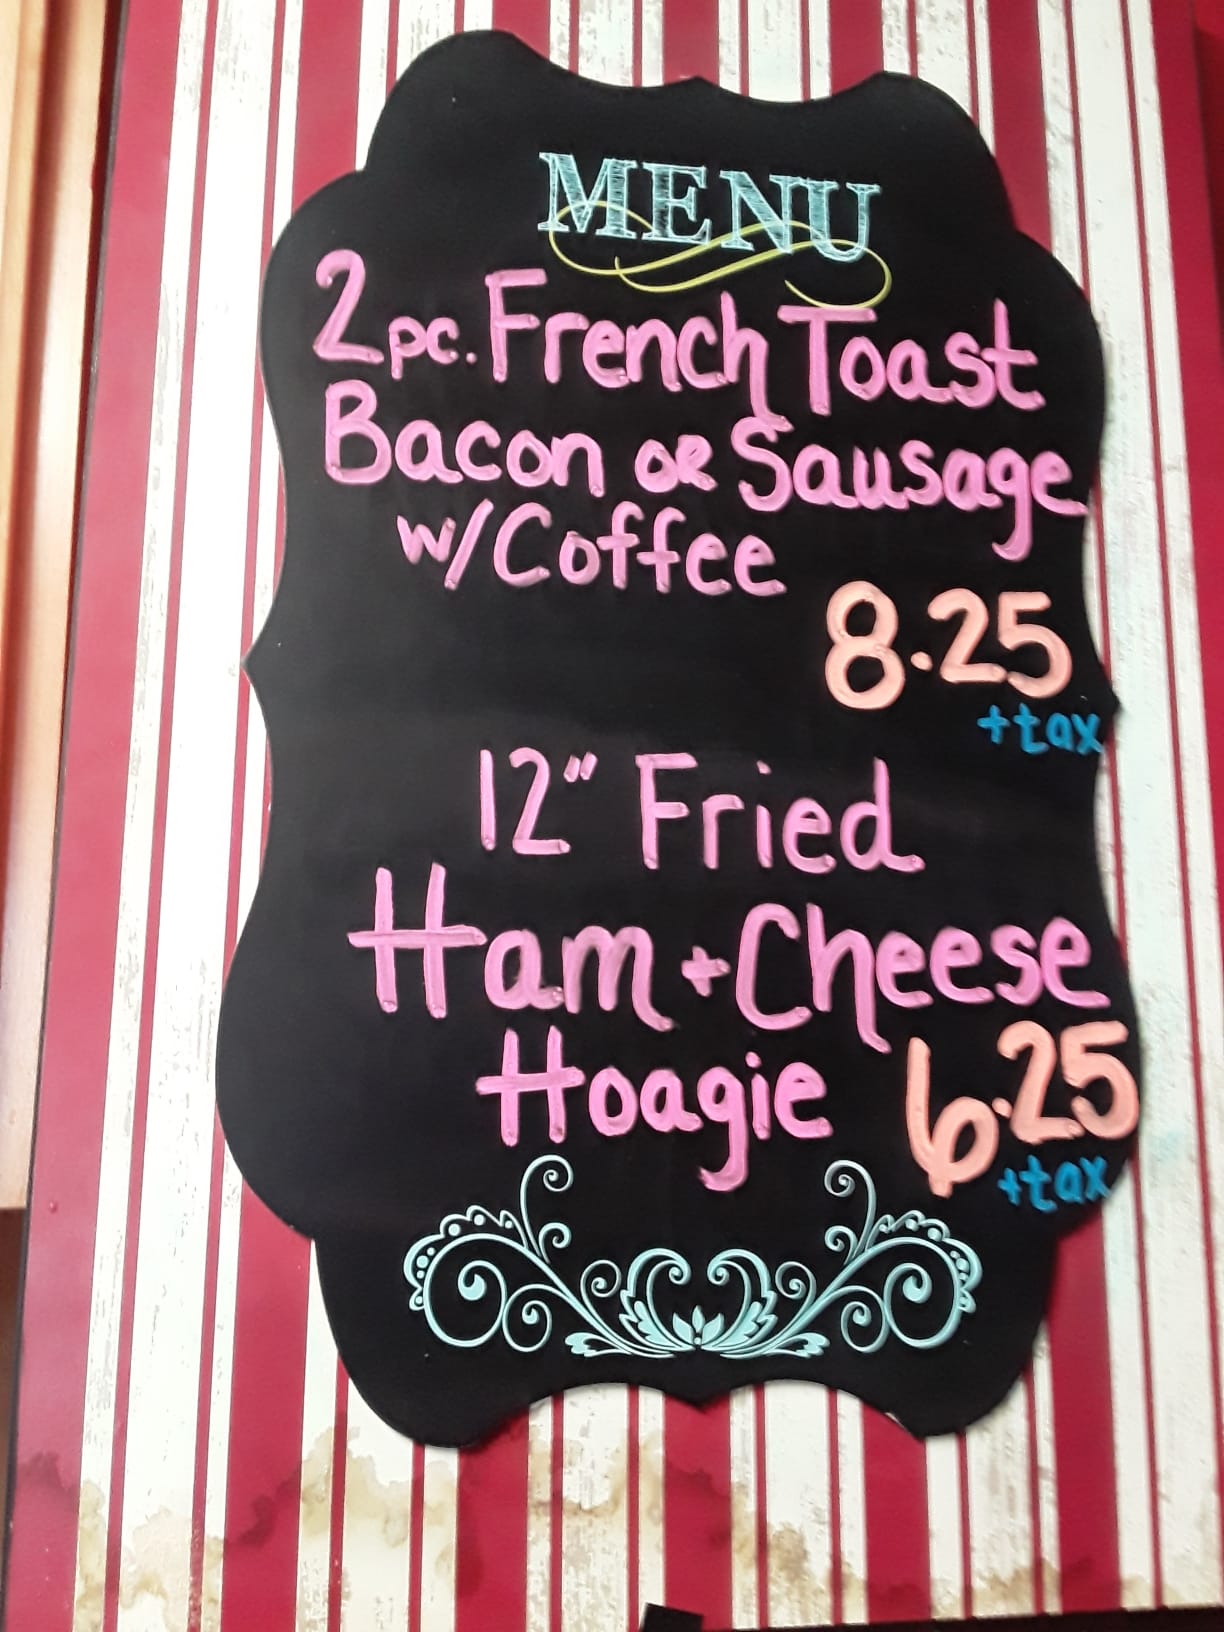 MENU
2pc. French Toast
Bacon or Sausage
w/Coffee
8.25
+tax
12" Fried
Ham + Cheese
Hoagie 6.25
+tax